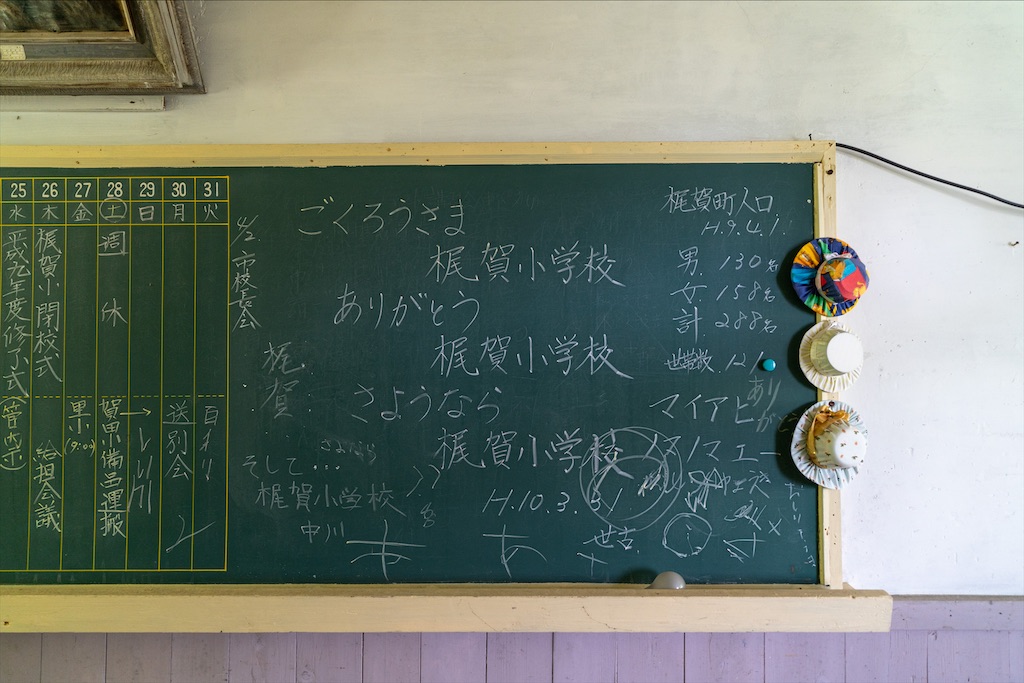 25 26 27 28 29 30 31
水 木 金 土 日 月 火
平成九年度修了式
梶賀小閉校式
給担会議
(9:00)
週休
備品運搬
送別会
4/2. 市校長会
ごくろうさま
梶賀小学校
ありがとう
梶賀小学校
さようなら
梶賀小学校
H.10.3.31
梶賀
さよなら
そして...
梶賀小学校
中川
世古
梶賀町人口
H.9.4.1.
男. 130名
女. 158名
計. 288名
世帯数. 121
あり
が
マイアヒー